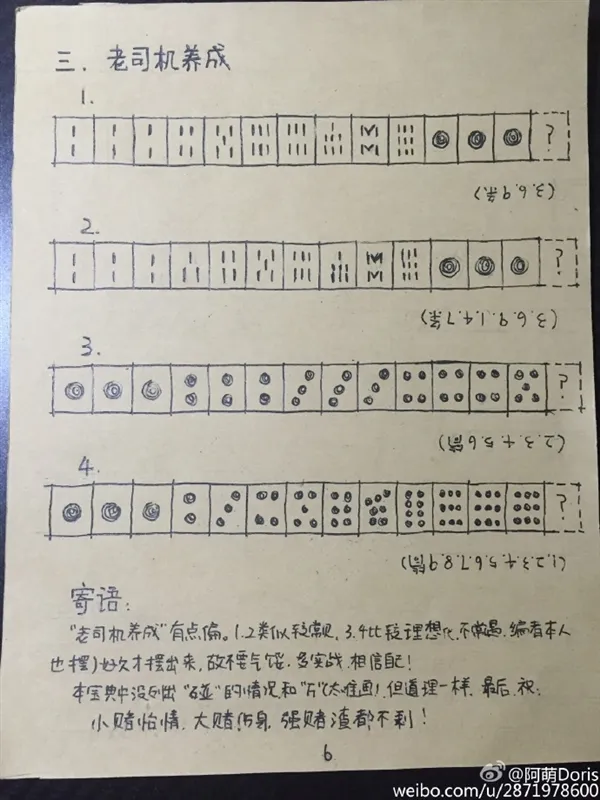 三. 老司机养成
1.
?
(3.6.9条)
2.
?
(3.6.9.1.4.7条)
3.
?
(2.3.4.5.6筒)
4.
?
(1.2.3.4.5.6.7.8.9筒)
寄语:
"老司机养成"有点偏。1.2类似较常见, 3.4比较理想化,不常遇.编者本人
也摆了好久才摆出来,故不要气馁.多实战.相信自己!
本宝典中没列出"碰"的情况和"万"(太难画),但道理一样.最后.祝:
小赌怡情.大赌伤身,强赌渣都不剩!
6
@阿萌Doris
weibo.com/u/2871978600